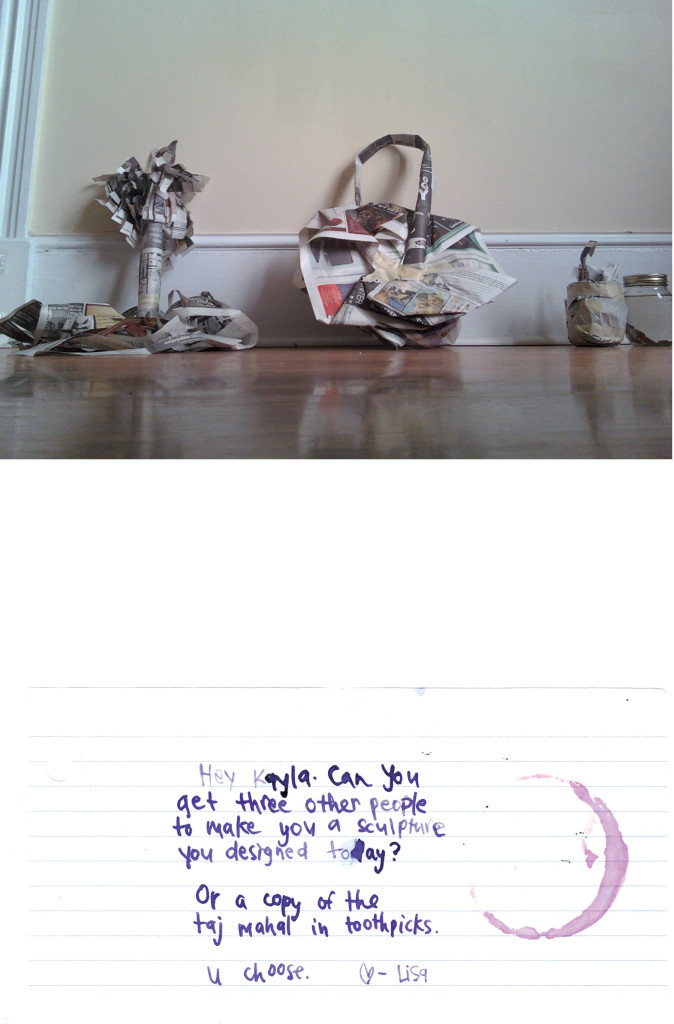 Hey Kayla. Can you
get three other people
to make you a sculpture
you designed today?
Or a copy of the
taj mahal in toothpicks.
u choose. ♡- Lisa